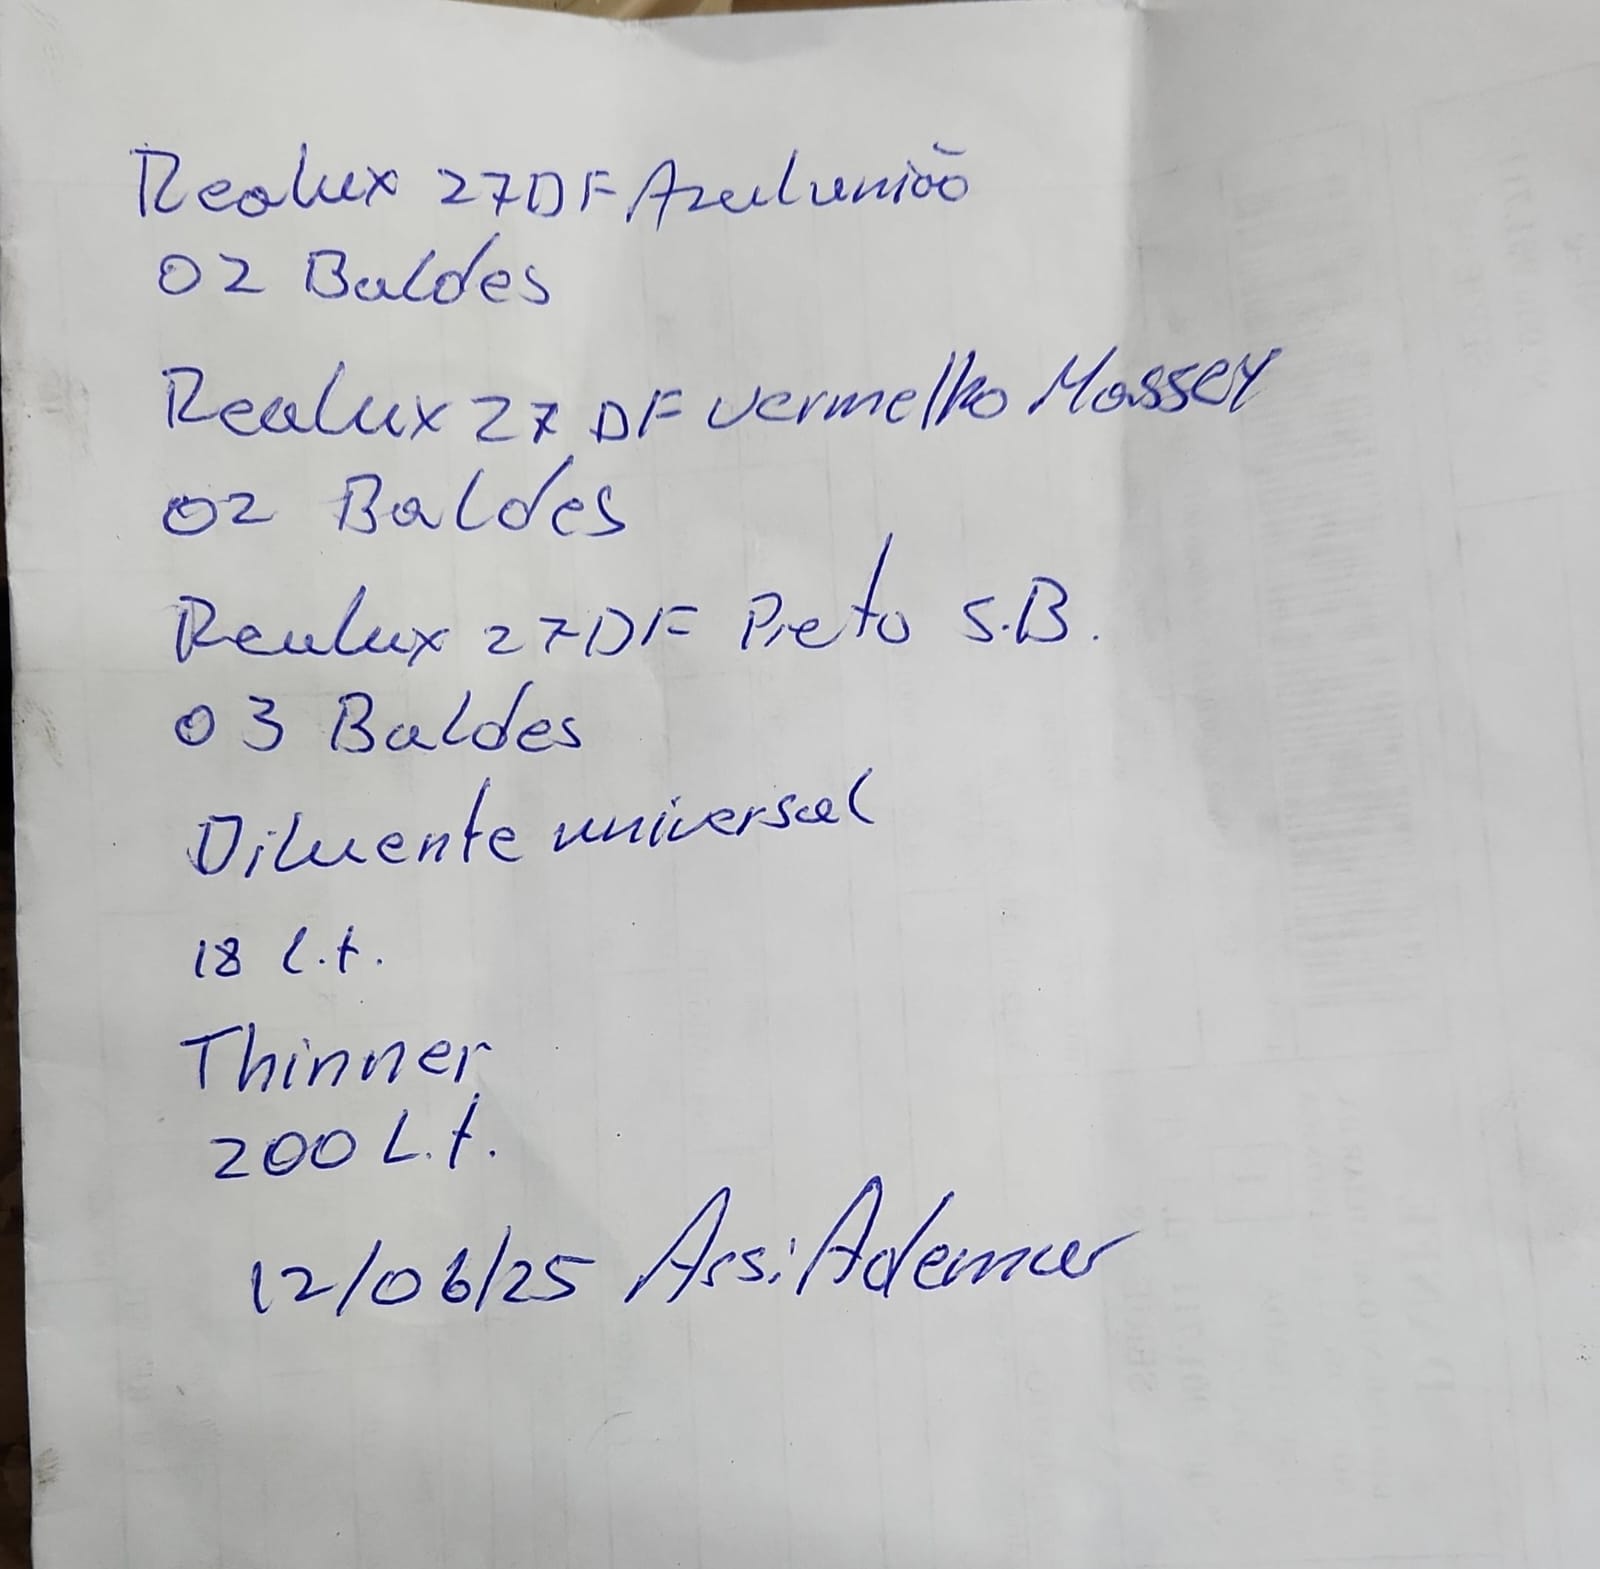 Realux 27DF Azul união
02 Baldes
Realux 27 DF vermelho Massey
02 Baldes
Realux 27DF Preto S.B.
03 Baldes
Diluente universal
18 l.t.
Thinner
200 L.t.
12/06/25 Ass: Ademar